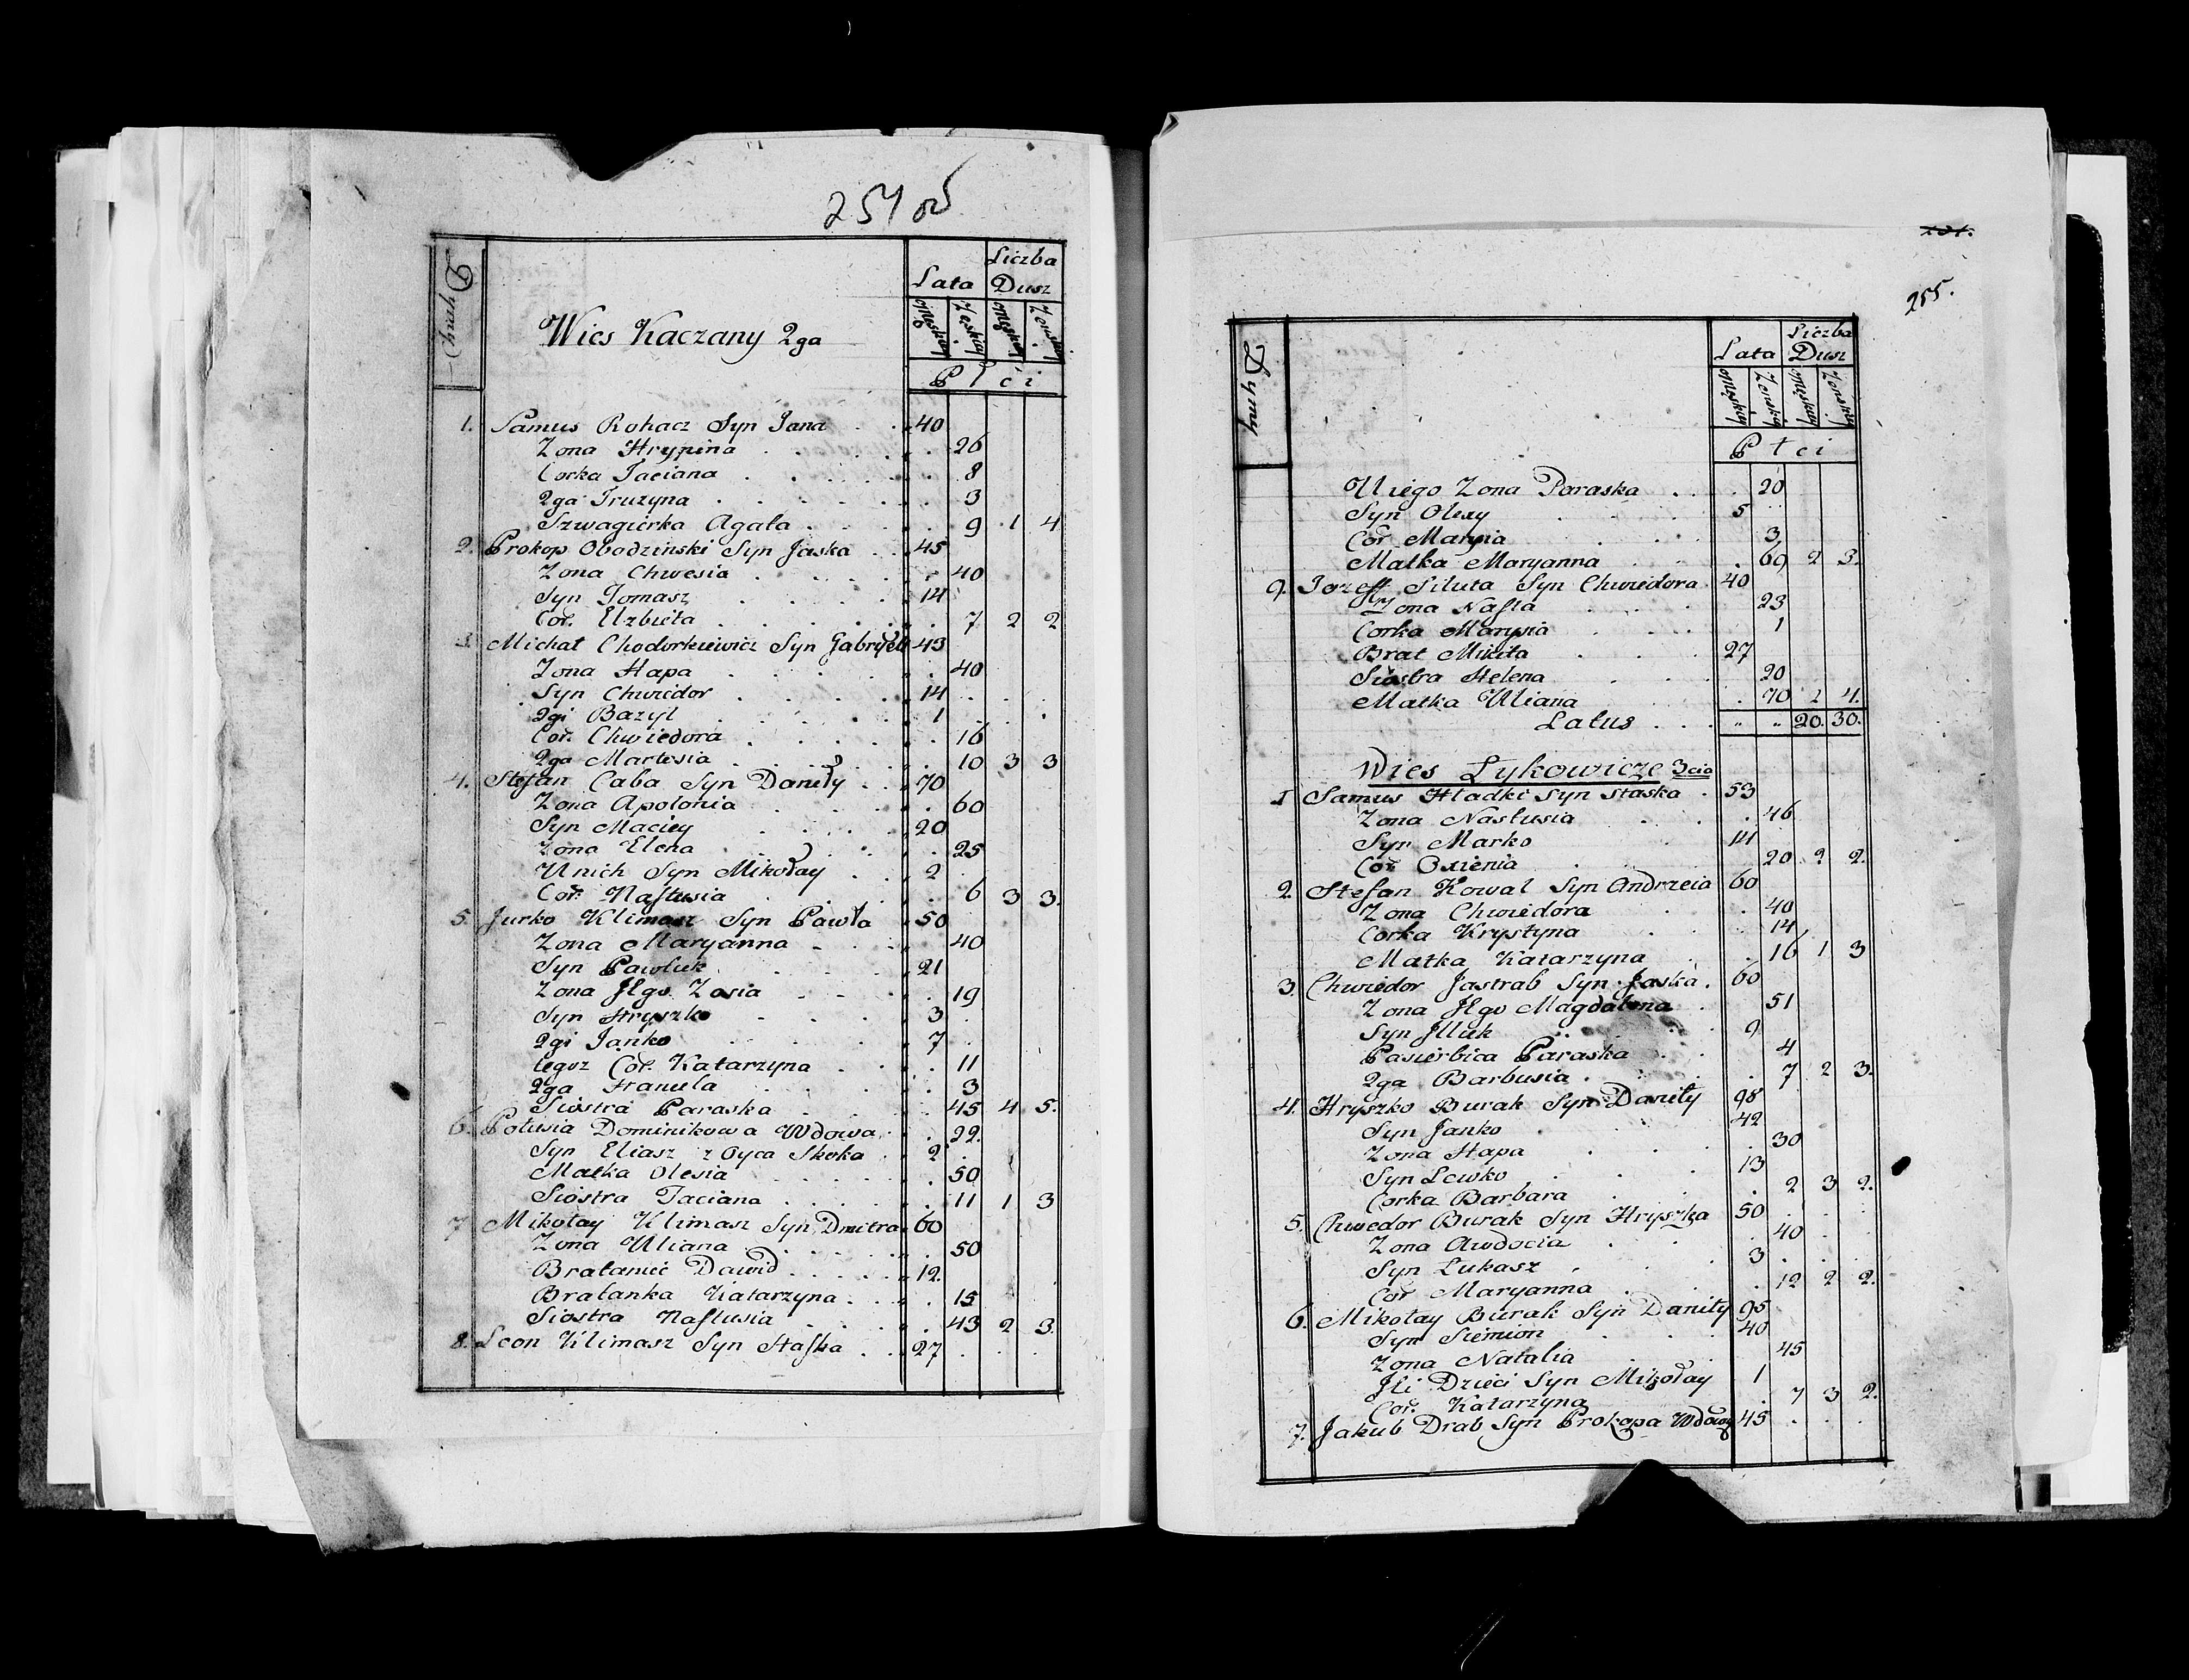 254 об
Dymy
Wies Kaczany 2ga
Lata Liczba Dusz
Męskiey Zeńskiey Męskiey Zeńskiey
Płci
1. Samus Rohacz Syn Jana 40
Zona Hrypina 26
Corka Taciana 8
2ga Truzyna 3
Szwagierka Agata 9 1 4
2. Prokop Obodzinski Syn Jaska 45
Zona Chwesia 40
Syn Tomasz 14
Cor. Elzbieta 7 2 2
3. Michał Chodorkiewicz Syn Gabryela 43
Zona Hapa 40
Syn Chwiedor 14
2gi Bazyl 1
Cor. Chwiedora 16
2ga Martesia 10 3 3
4. Stefan Caba Syn Daniły 70
Zona Apolonia 60
Syn Maciey 20
Zona Elena 25
U nich Syn Mikołay 2
Cor. Nastusia 6 3 3.
5. Jurko Klimasz Syn Pawła 50
Zona Maryanna 40
Syn Pawluk 21
Zona Jego Zosia 19
Syn Hryszko 3
2gi Janko 7
tegoz Cor. Katarzyna 11
2ga Franuela 3
Siostra Paraska 45 4 5.
6. Polusia Dominikowa Wdowa 22.
Syn Eliasz z Oyca Skoka 2
Matka Olesia 50
Siostra Taciana 11 1 3
7 Mikołay Klimasz Syn Dmitra 60
Zona Uliana 50
Brataniec Dawid 12.
Bratanka Katarzyna 15
Siostra Nastusia 43 2 3.
8. Leon Klimasz Syn Staska 27
255.
Dymy
Lata Liczba Dusz
Męskiey Zeńskiey Męskiey Zeńskiey
Płci
U iego Zona Paraska 20
Syn Olexy 5
Cor Marysia 3
Matka Maryanna 60 2 3.
9. Jozeff Siluta Syn Chwiedora 40
Zona Nasta 23
Corka Marysia 1
Brat Mikita 27
Siostra Helena 20
Matka Uliana 70 2 4.
Latus " " 20. 30.
Wies Łykowicze 3cia
1 Samus Hładki Syn Staska 53
Zona Nastusia 46
Syn Marko 14
Cor Oxienia 20 2 2.
2. Stefan Kowal Syn Andrzeia 60
Zona Chwiedora 40
Corka Krystyna 14
Matka Katarzyna 16 1 3
3. Chwiedor Jastrab Syn Jaska 60
Zona Jego Magdalena 51
Syn Illuk 9
Pasierbica Paraska 4
2ga Barbusia 7 2 3.
4. Hryszko Burak Syn Daniły 98
Syn Janko 42
Zona Hapa 30
Syn Lewko 13
Corka Barbara 2 3 2.
5. Chwedor Burak Syn Hryszka 50
Zona Awdocia 40
Syn Lukasz 3
Cor Maryanna 12 2 2.
6. Mikołay Burak Syn Daniły 95
Syn Siemion 40
Zona Natalia 45
Jli Dzieci Syn Mikołay 1
Cor. Katarzyna 7 3 2.
7. Jakub Drab Syn Prokopa Wdowy 45